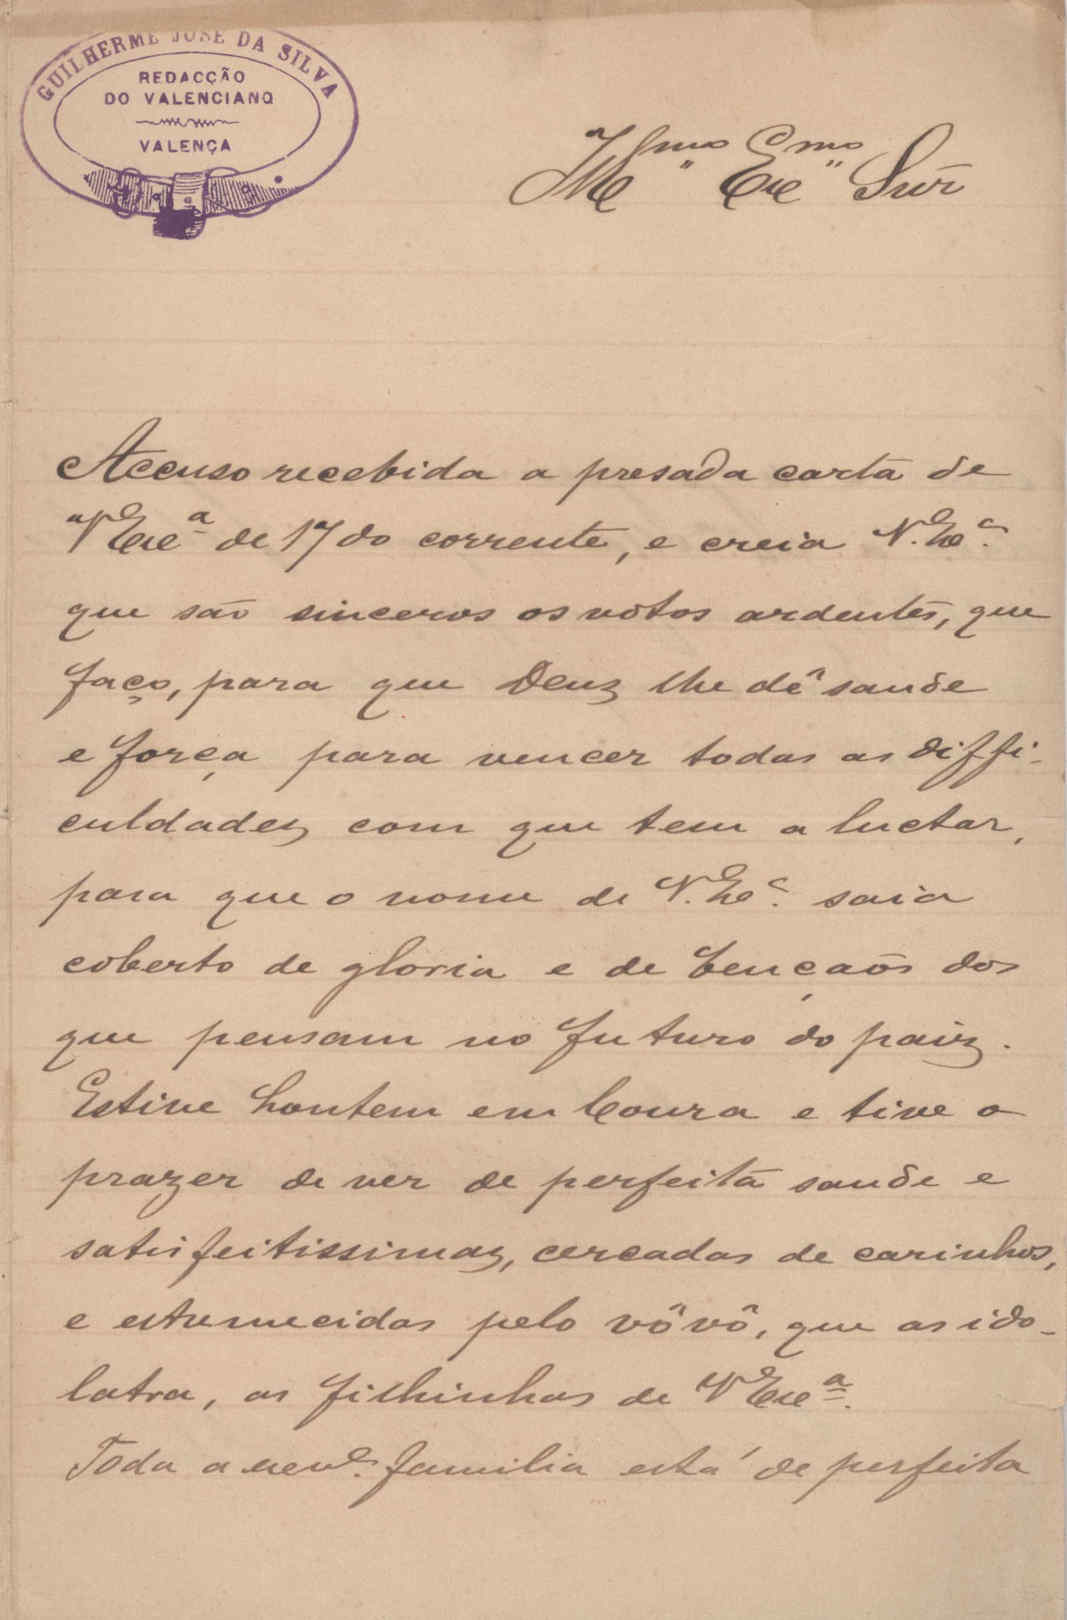 GUILHERME JOSÉ DA SILVA
REDACÇÃO
DO VALENCIANO
VALENÇA
Illmo Excmo Snr
Accuso recebida a presada carta de
V Excª de 17 do corrente, e creia V. Exª.
que são sinceros os votos ardentes, que
faço, para que Deuz lhe dê saude
e força para vencer todas as diffi-
culdadez com que tem a luctar,
para que o nome de V. Exª. saia
coberto de gloria e de bençaõs dos
que pensam no futuro do paiz.
Estive hontem em Coura e tive o
prazer de ver de perfeita saude e
satisfeitissimaz, cercadas de carinhos,
e estremecidas pelo vôvô, que as ido-
latra, as filhinhas de V Excª.
Toda a familia está de perfeita